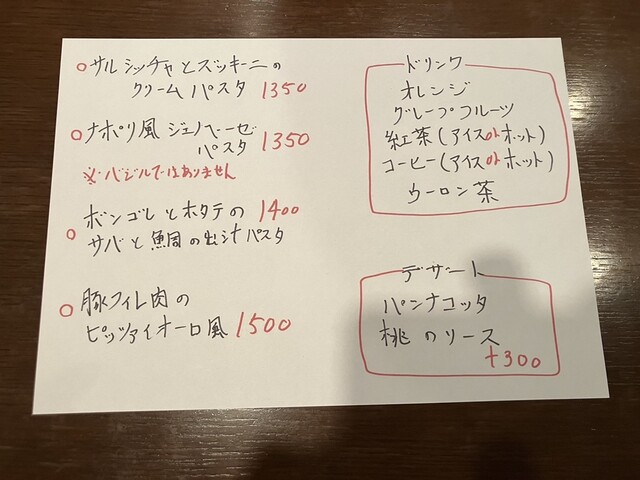 ○サルシッチャとズッキーニの
クリームパスタ 1350
○ナポリ風 ジェノベーゼ
パスタ 1350
※バジルではありません
ボンゴレとホタテの 1400
○サバと鯛の出汁パスタ
○豚フィレ肉の
ピッツァイオーロ風 1500
ドリンク
オレンジ
グレープフルーツ
紅茶(アイスorホット)
コーヒー(アイスorホット)
ウーロン茶
デザート
パンナコッタ
桃のソース
+300